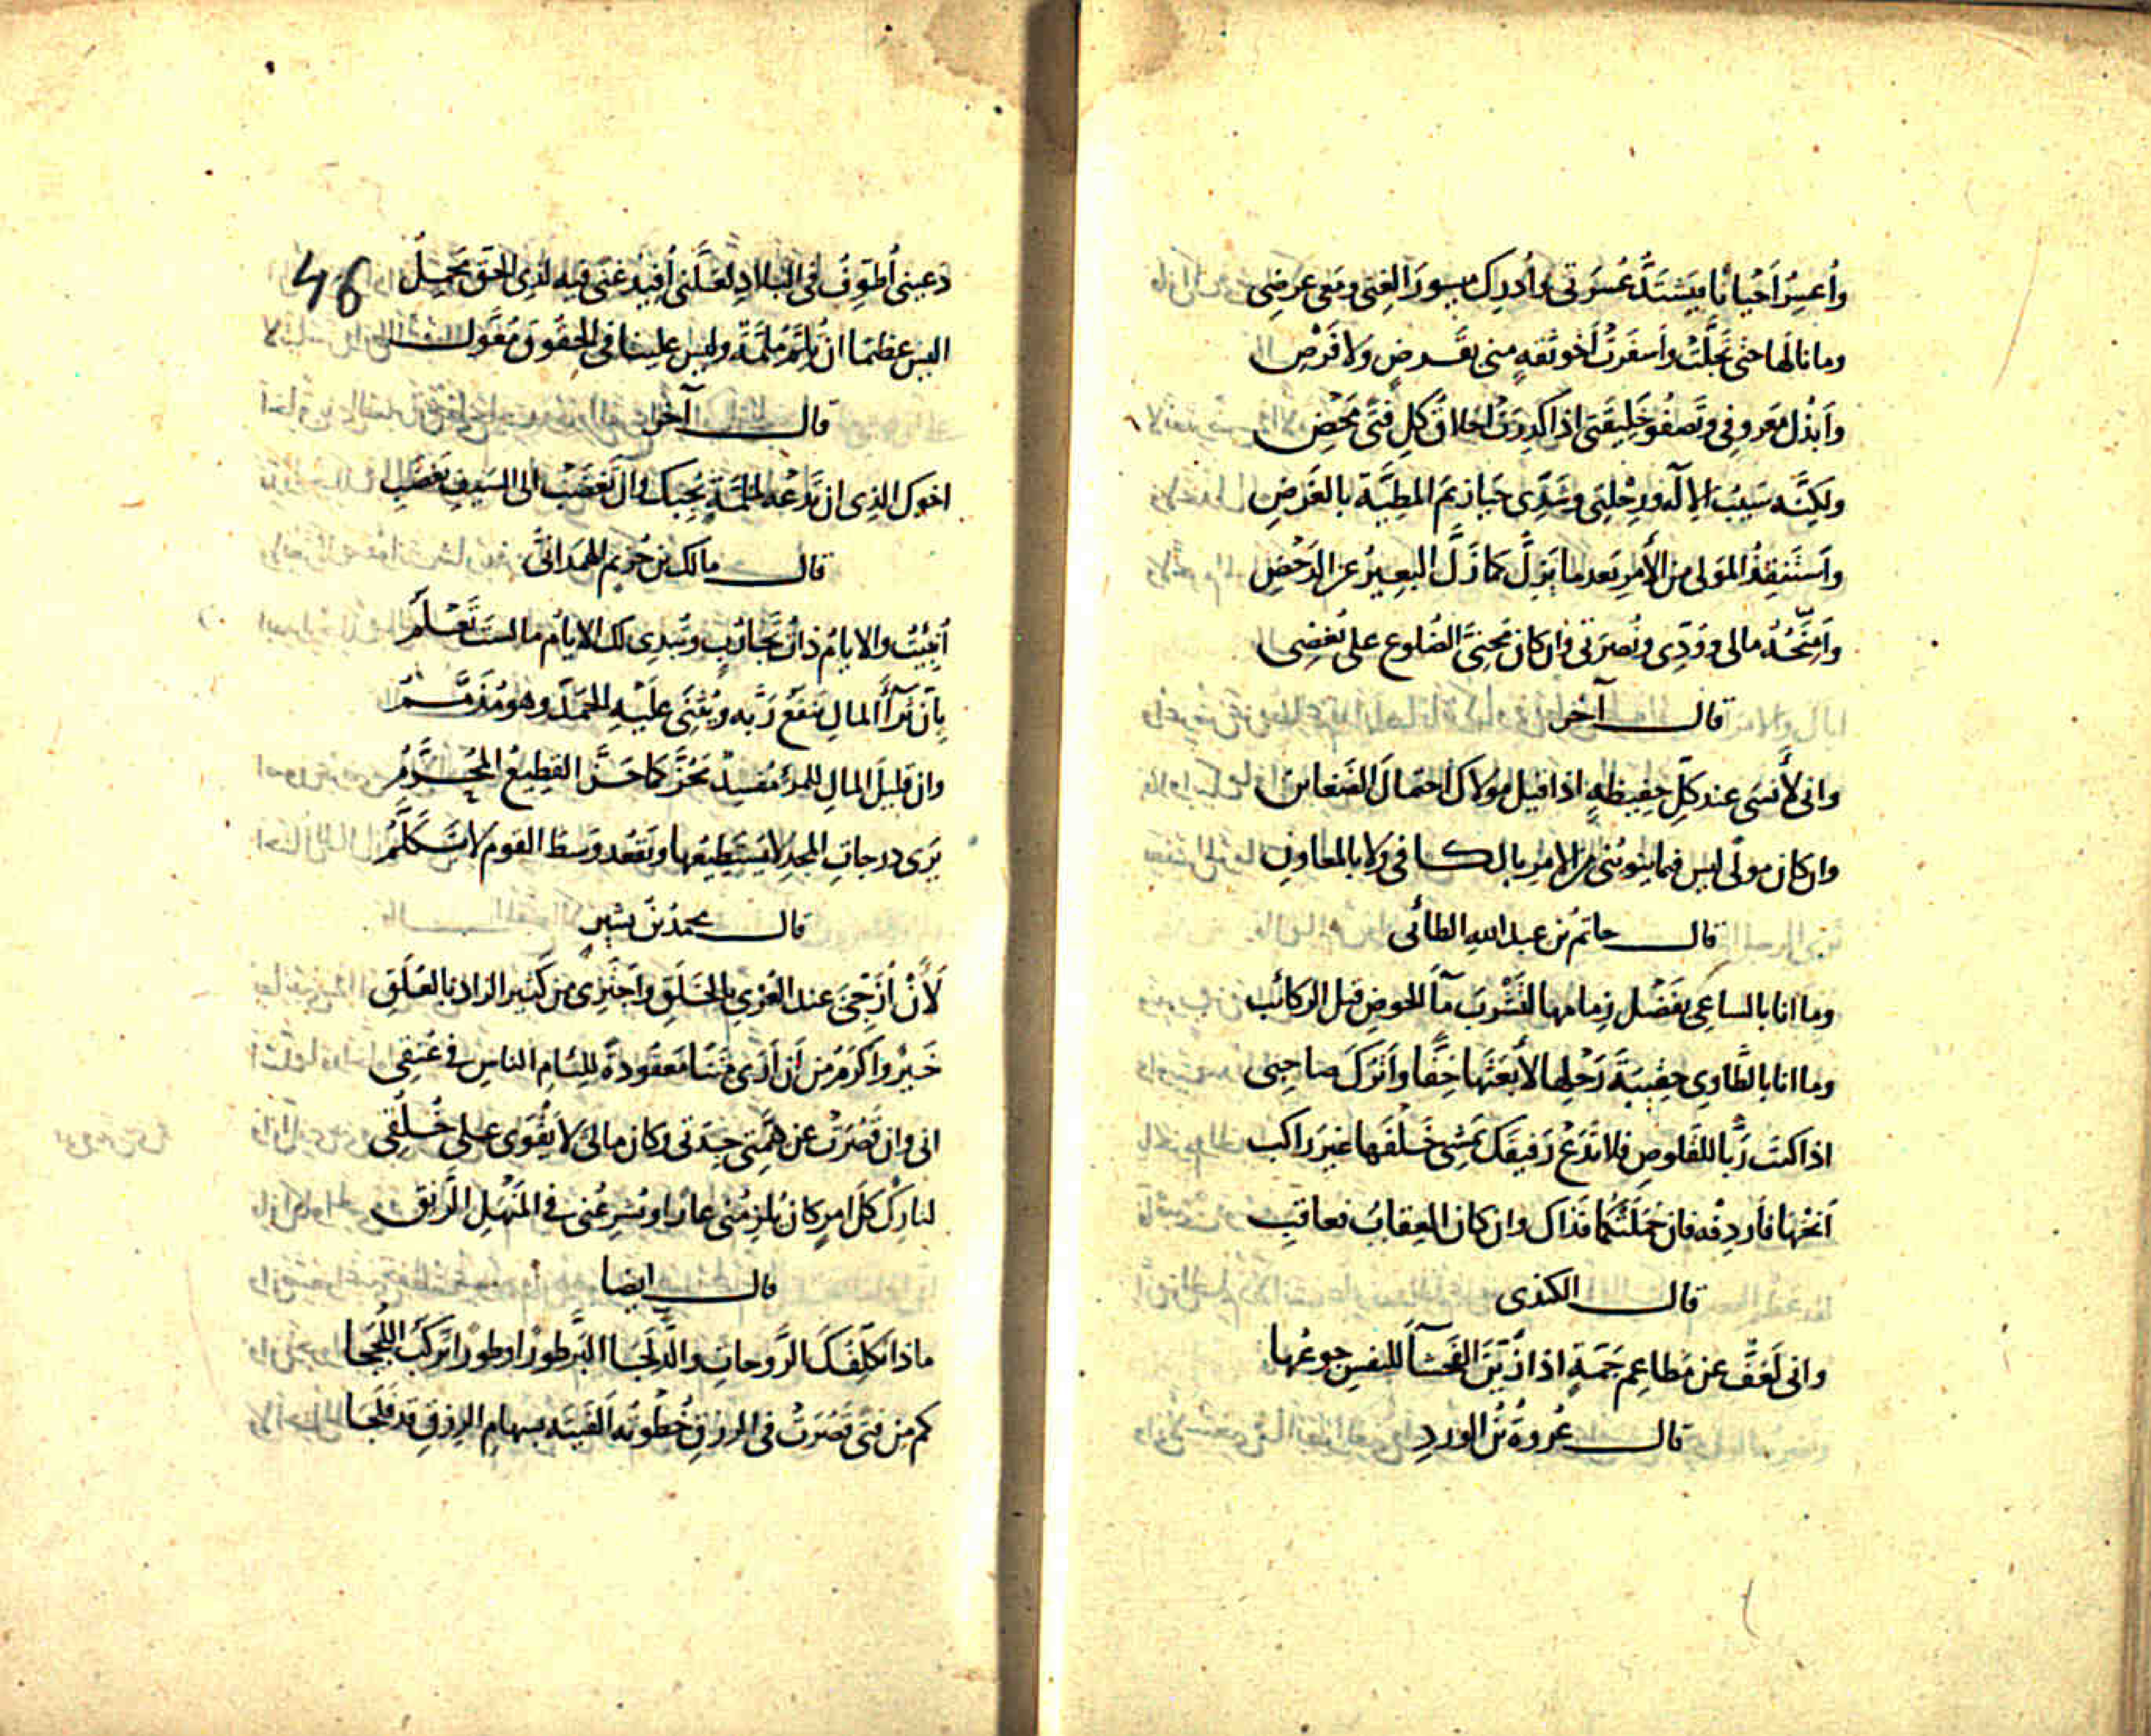 وَأُعْسِرُ أَحْيَانًا فَيَشْتَدُّ عُسْرَتِي وأُدرِك ميسورَ الغِنى ومَعى عرضى
وما نالها حتى تَجَلَّتْ وأسفَرَتْ أخو ثقةٍ منى بقَرضٍ ولا فَرْضِ
وَأبذُل مَعروفِى وتَصفُو خَلِيقَتِى اذا كَدِرَتْ اخلاقُ كلِ فتًى مَحْضِ
ولكِنَّه سَيْبُ الإِله ورِحْلتِى وشَدِّى حيازيمَ المطيَّة بالغَرضِ
وأستَنقِذُ المَولى من الأَمرِ بَعد ما يَزِلُّ كما زَلَّ البعيرُ عن الدَحْضِ
وأَمنَحُهُ مالى ووُدّى ونُصرَتى وان كان مَحْنِىَّ الضُلوع على بُغضِى
قال آخر
وانى لأَنسَى عند كلِّ حفيظةٍ اذا قيل مولاك احتمالَ الضغاين
وان كان مولًى ليس فيما ينوبُنى من الامر بالكافى ولا بالمعاونِ
قال حاتمُ بن عبد الله الطائى
وما انا بالساعى بفَضْل زِمامها لتَشْربَ مآءَ الحوضِ قبل الركائب
وما انا بالطَّاوِى حقيبَةَ رَحْلِها لأَبعَثَها خِفًّا وأَترُكَ صاحِبى
اذا كنتَ رَبًّا للقَلوصِ فلا تَدَعْ رَفيقَكَ يَمشِى خَلْفَها غيرَ راكب
أَنِخْها فأَردِفْه فان حَمَلَتْكُما فذاك وان كان العِقابُ فعاقبِ
قال الكندى
وانى لَعَفٌّ عن مَطاعِمٍ جَمَّةٍ اذا زَيَّنَ الفَحشآءَ للنفسِ جوعُها
قال عُروةُ بنُ الوردِ
دَعينى أُطَوِّفْ فى البلادِ لعَلَّنى أُفيدُ غنًى فيه لذى الحَقِّ مَحْمِلُ
اليس عظيمًا ان تُلِمَّ مُلِمَّةٌ وليس علينا فى الحقوق مُعَوَّل
46
قال آخر
اخوك الذى ان تَدْعُه لمُلِمَّةٍ يُجِبك وان تَغْضَبْ الى السَيفِ يَغضَبِ
قال مالك بن حُريم الهمدانى
أُنبِئتُ والايامُ ذاتُ تجَارُبٍ وتُبدِى لك الايامُ مالستَ تَعْلَمُ
بأَن ثَرآءَ المالِ يَنفَعُ رَبَّه ويُثنِى عَلَيْهِ الحَمدَ وهو مُذَمَّمُ
وان قليلَ المالِ للمرءِ مُفسِدٌ يَحُزُّ كما حَزَّ القطيعُ المُحَرَّمُ
يَرَى درجاتِ المجدِ لا يَستَطيعُها ويَقعُد وَسطَ القوم لا يتكَلَّمُ
قال محمد بن بشيرٍ
لَأَنْ أُزَجِّىَ عند العُرْىِ بالخَلَقِ وأجتَزِى من كثير الزاد بالعُلَقِ
خَيرٌ واكرَمُ مِن أن أَرَى مِنَنًا مَعقُودةً لِلِئامِ الناسِ فى عُنقِى
انى وان قَصُرَتْ عن هِمَّتِى جِدَتى وكان مالى لا يَقْوَى على خُلُقِى
لتارِكٌ كلَّ امرٍ كان يُلزِمُنى عارًا ويُشرِعُنى فى المَنهَلِ الرَّنقِ
قال ايضا
ماذا يُكَلِّفُكَ الرَّوحاتِ والدُّلَجَا البَرَّ طورًا وطورًا تَركَبُ اللُّجَجا
كم مِن فتًى قَصُرَتْ فى الرزقِ خُطوَتُه أَلفَيتَه بسهامِ الرِزقِ قد فَلَجَا